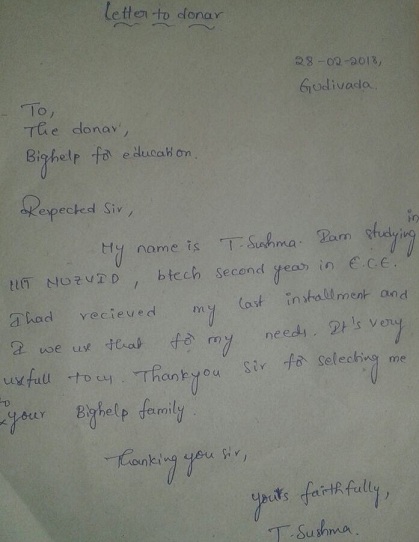 Letter to donar
28-02-2013,
Gudivada.
To,
The donar,
Bighelp for education.
Respected Sir,
My name is T. Sushma. I am studying in
IIIT NUZVID, btech second year in E.C.E.
I had recieved my last installment and
I we use that for my needs. It's very
usefull to us. Thankyou sir for selecting me
to your Bighelp family.
Thanking you sir,
yours faithfully,
T. Sushma.